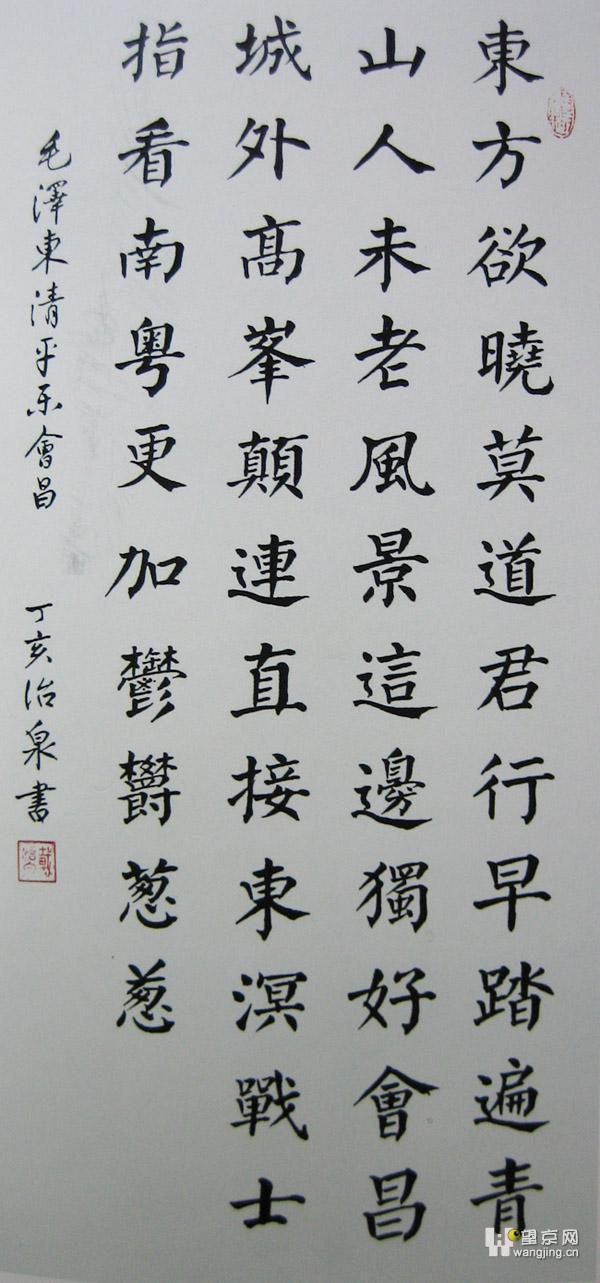 東方欲曉莫道君行早踏遍青
山人未老風景這邊獨好會昌
城外高峯顛連直接東溟戰士
指看南粵更加鬱欝葱葱
毛澤東清平乐會昌
丁亥治泉書
望京网
wangjing.cn